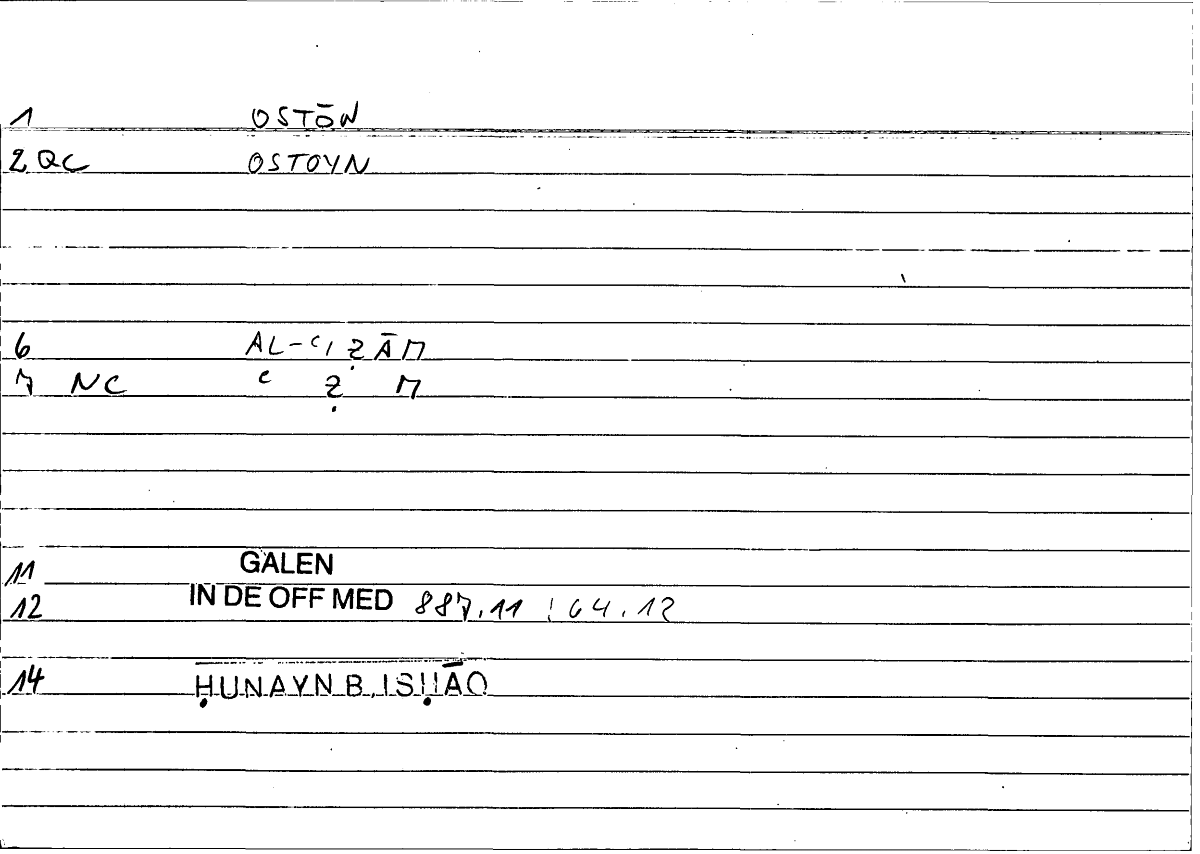 1 OSTŌN
2 QC OSTOYN
6 AL-ʿIẒĀM
7 NC ʿ Ẓ M
11 GALEN
12 IN DE OFF MED 887.11 : 64.12
14 ḤUNAYN B. ISḤĀQ